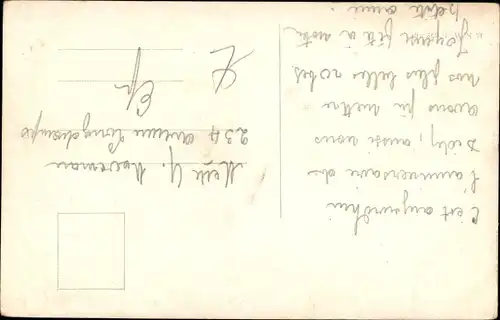 C'est aujourd'hui
l'anniversaire de
Didy, aussi nous
avons pu mettre
nos plus belles robes.
Joyeuse fête à notre
petite amie.
Melle Y. Moerman
234 avenue Longchamp